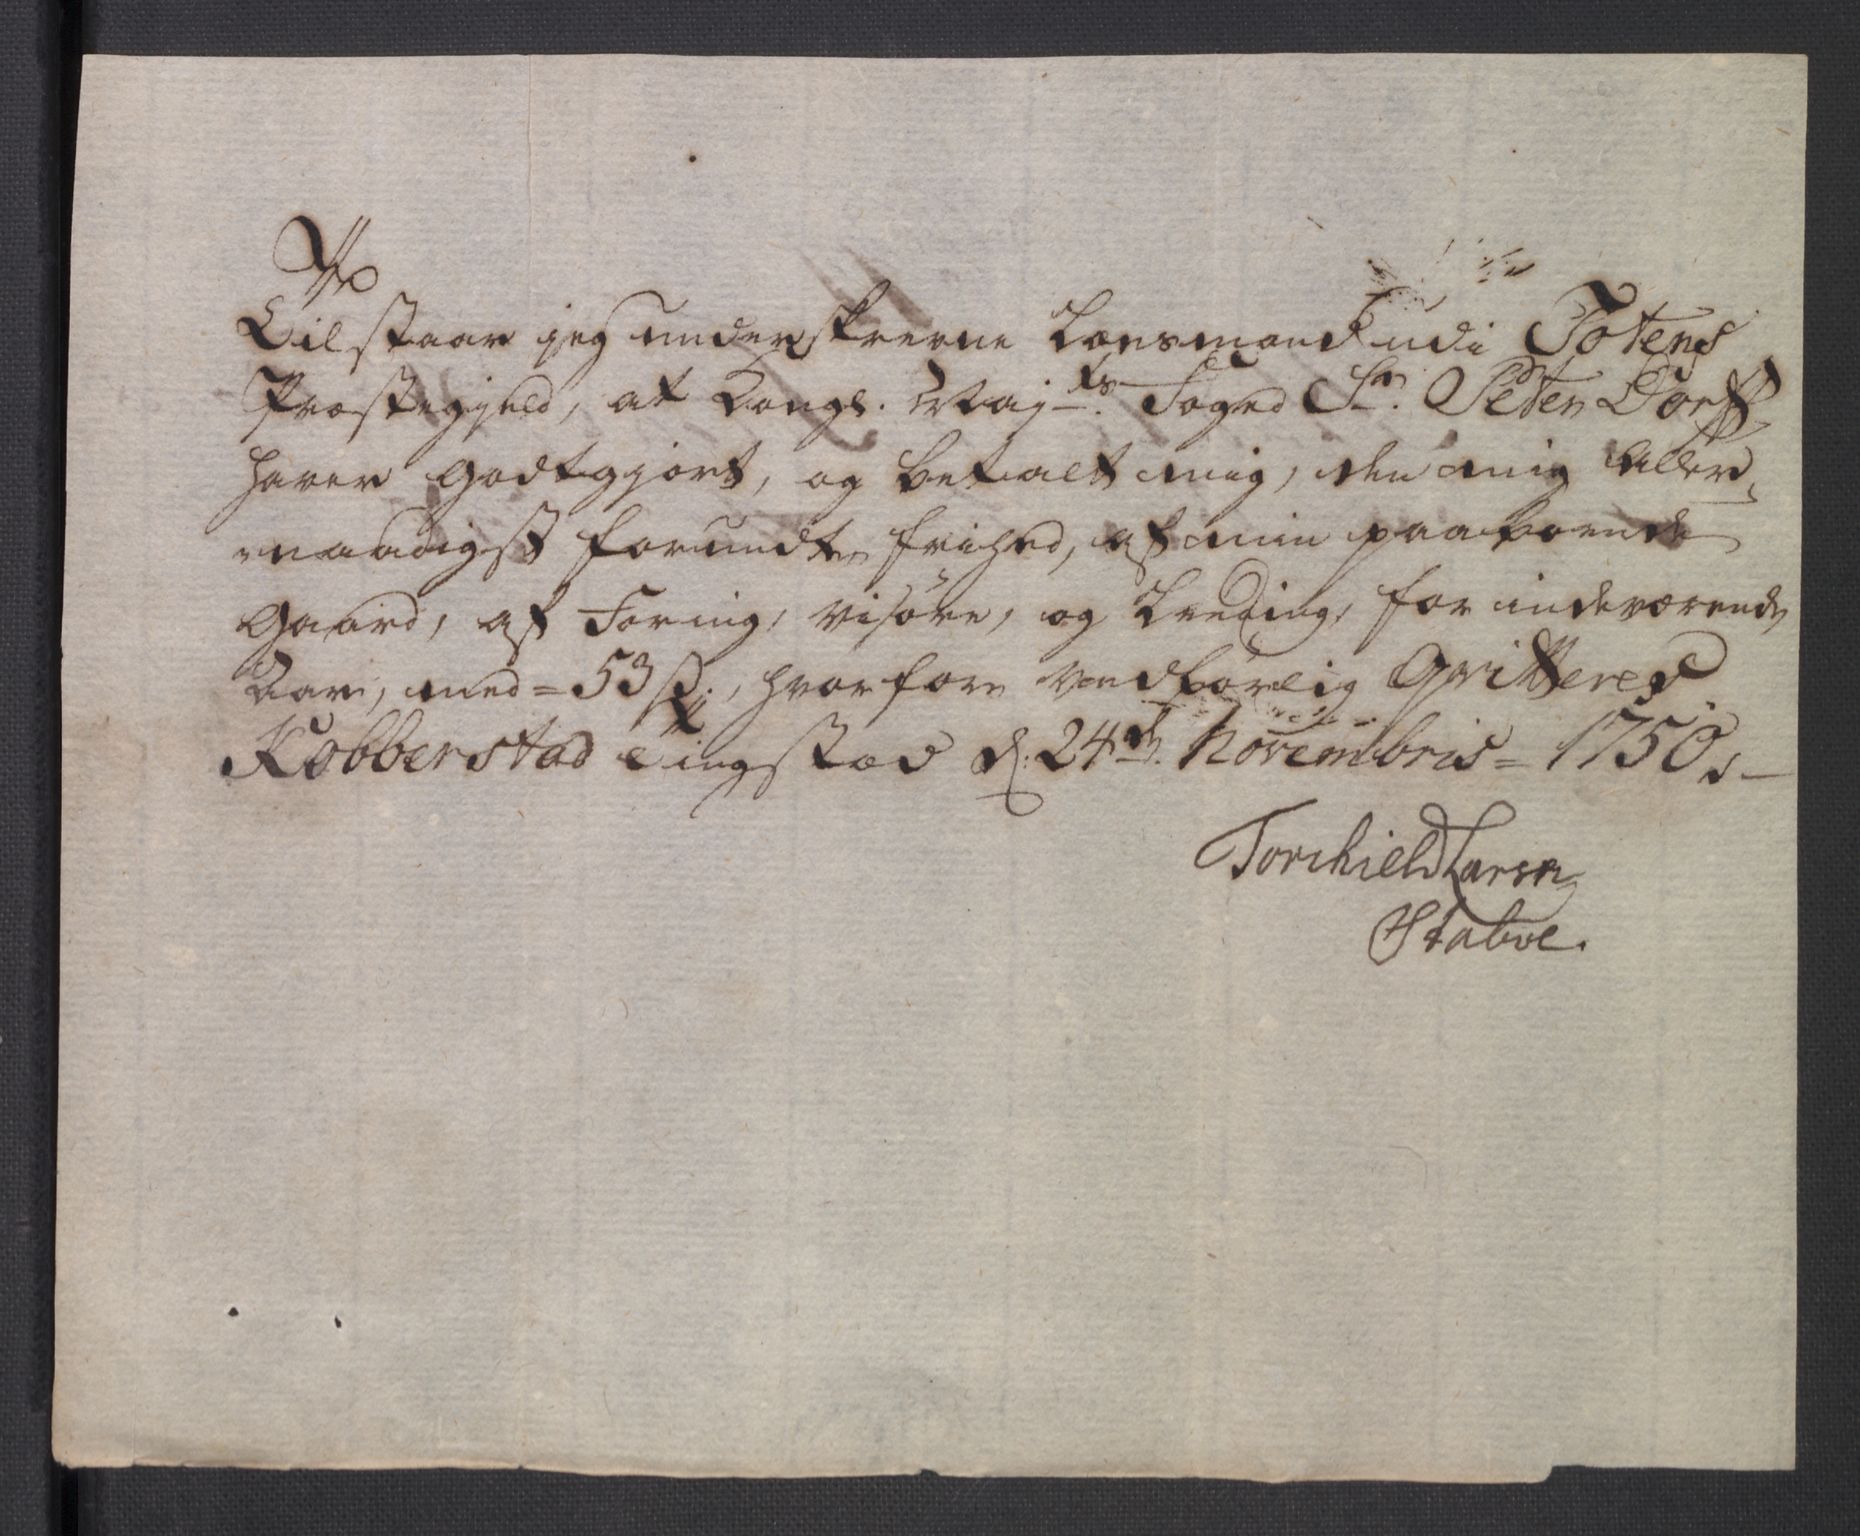 Tilstaar jeg underskrevne Lænsmand udi Totens
Præstegjeld, at Kongl. Maj.ts Foged Sr. Peter Dorff
haver godtgjort, og betalt mig, den mig Aller-
naadigst forundte frihed, af min paaboende
Gaard, af Foring, Visøre, og Leeding, for indeværende
Aar, med = 53 ß, hvorfore vedbørlig Qvitteres
Kobberstad Tingstæd d: 24de Novembris = 1750.
Torchield Larsen
Staboe.